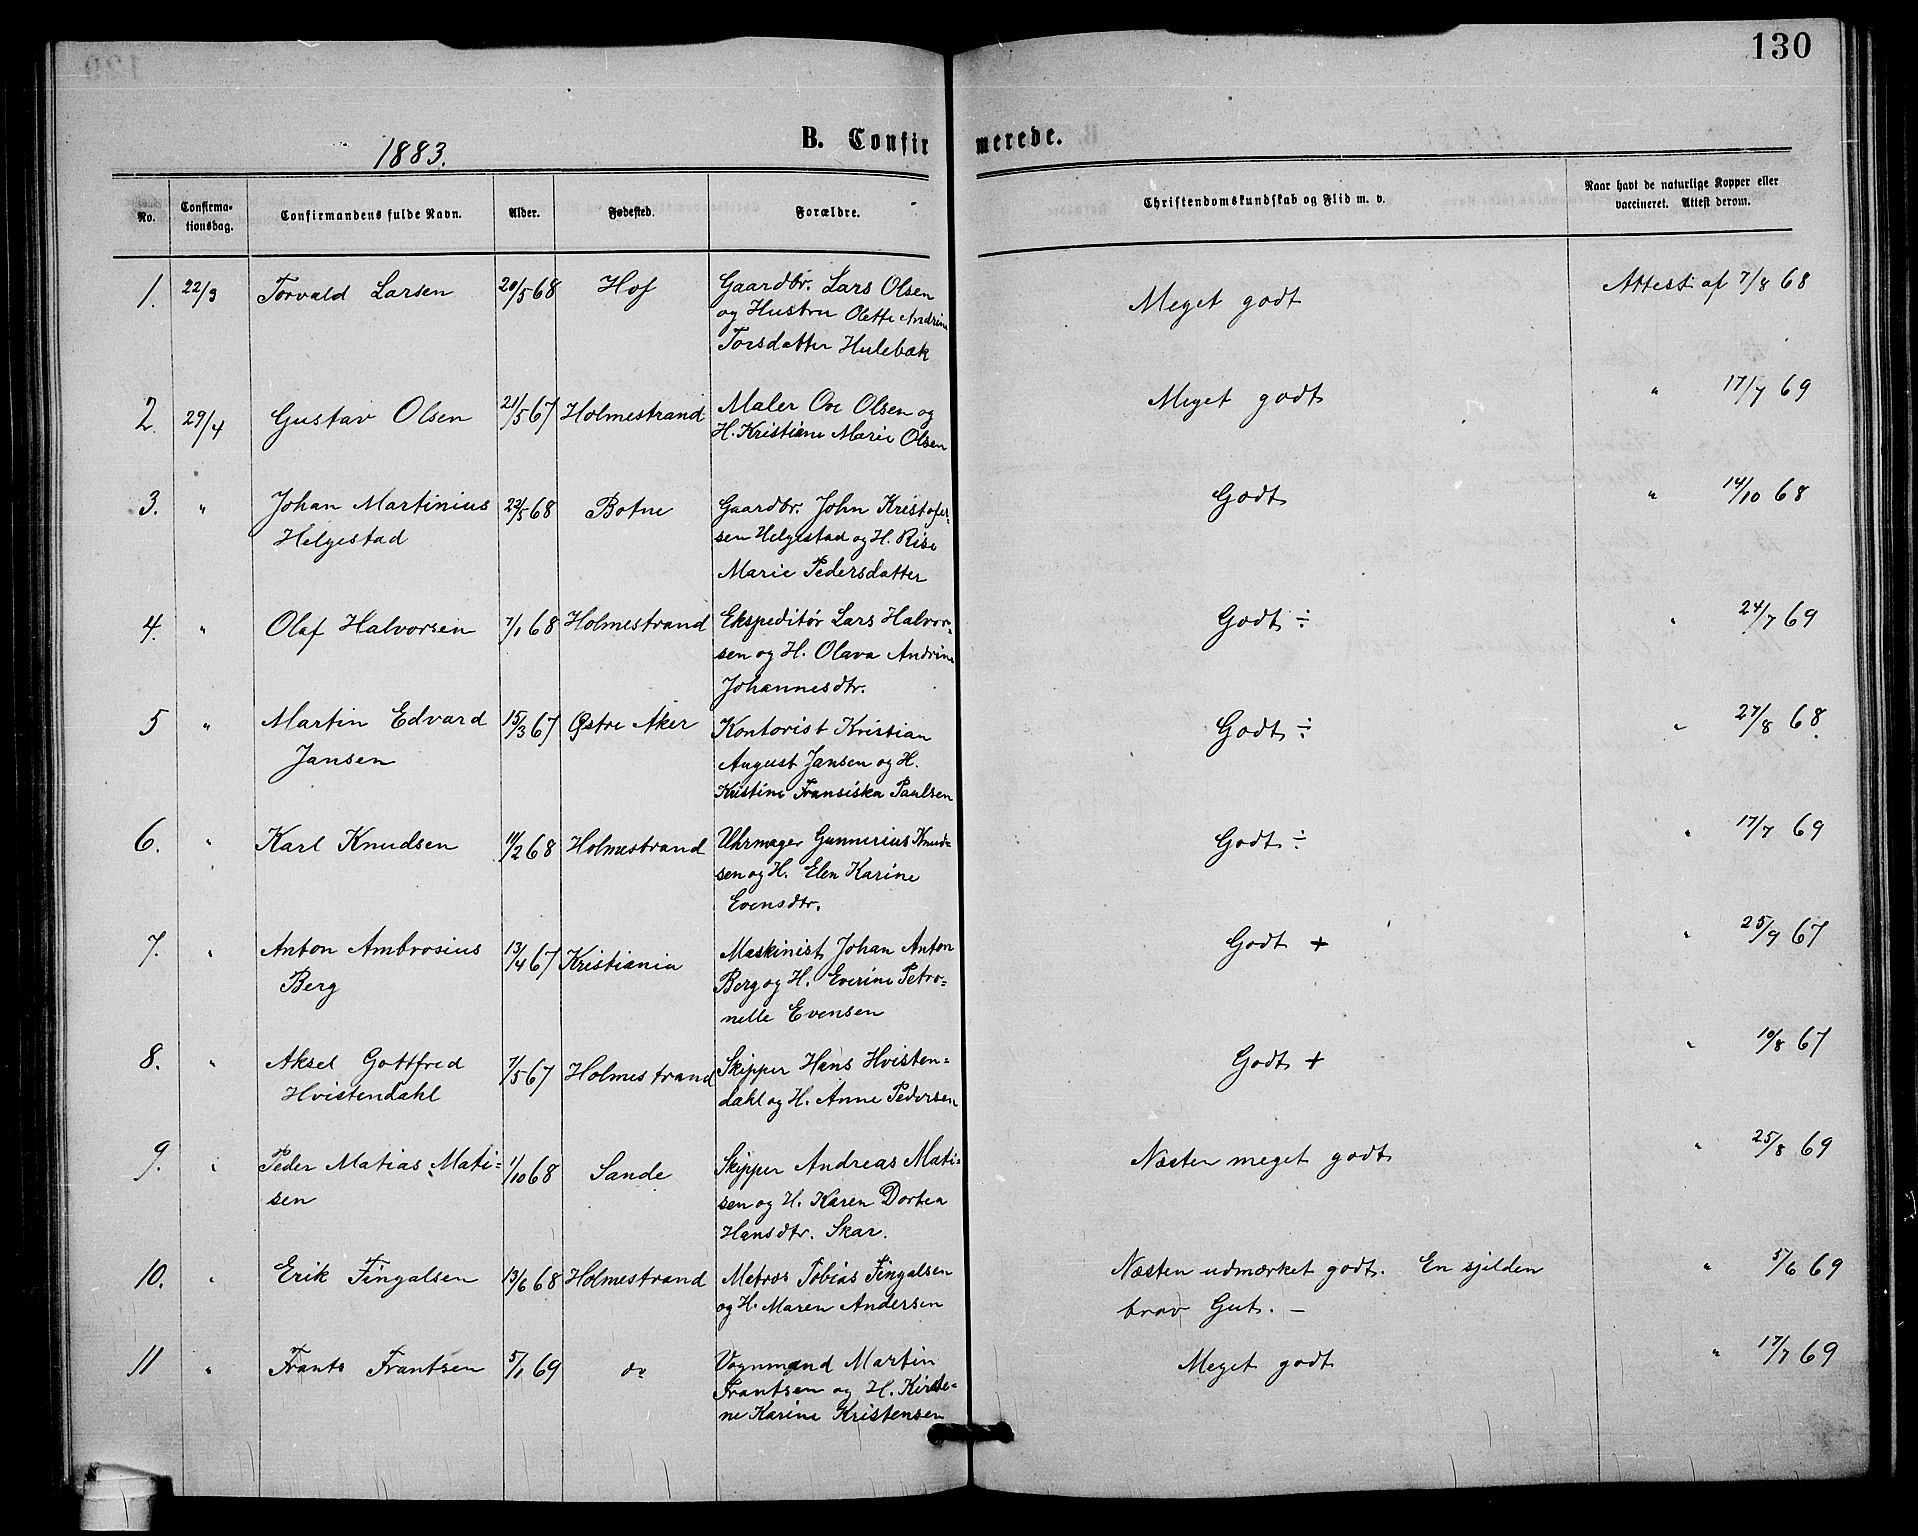 130
1883.
B. Confirmerede.
No. Confirma-tionsdag. Confirmandens fulde Navn. Alder. Fødested. Forældre. Christendomskundskab og Flid m. v. Naar havt de naturlige Kopper eller vaccineret. Attest derom.
1. 22/3 Torvald Larsen 20/5 68 Hof Gaardbr. Lars Olsen Meget godt Attest af 7/8 68
og Hustru Olette Andrine
Torsdatter Hulebak
2. 29/4 Gustav Olsen 21/5 67 Holmestrand Maler Ove Olsen og Meget godt " 17/7 69
H. Kristiane Marie Olsen
3. " Johan Martinius 22/5 68 Botne Gaardbr. John Kristofer- Godt " 14/10 68
Helgestad sen Helgestad og H. Rise
Marie Pedersdatter
4. " Olaf Halvorsen 7/1 68 Holmestrand Ekspeditør Lars Halvor- Godt ÷ " 24/7 69
sen og H. Olava Andrine
Johannesdtr.
5 " Martin Edvard 15/3 67 Østre Aker Kontorist Kristian Godt ÷ " 27/8 68.
Jansen August Jansen og H.
Kristine Fransiska Paulsen
6. " Karl Knudsen 11/2 68 Holmestrand Uhrmager Gunnerius Knud- Godt ÷ " 17/7 69
sen og H. Elen Karine
Evensdtr.
7. " Anton Ambrosius 13/4 67 Kristiania Maskinist Johan Anton Godt + " 25/9 67
Berg Berg og H. Everine Petro-
nelle Evensen
8. " Aksel Gottfred 7/5 67 Holmestrand Skipper Hans Hvisten- Godt + " 10/8 67
Hvistendahl dahl og H. Anne Pedersen
9. " Peder Matias Mati- 1/10 68 Sande Skipper Andreas Mati- Næsten meget godt " 25/8 69
sen sen og H. Karen Dortea
Hansdtr. Skar.
10. " Erik Fingalsen 13/6 68 Holmestrand Matros Tobias Fingalsen Næsten udmærket godt. En sjelden " 5/6 69
og H. Maren Andersen brav Gut. –
11 " Frants Frantsen 5/1 69 do Vognmand Martin Meget godt " 17/7 69
Frantsen og H. Kirste-
ne Karine Kristensen